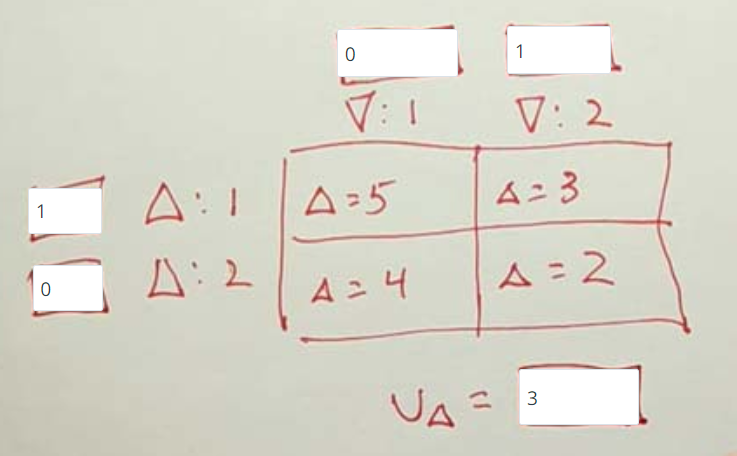 0 1
∇: 1 ∇: 2
1 Δ: 1 Δ=5 Δ=3
0 Δ: 2 Δ=4 Δ=2
UΔ = 3